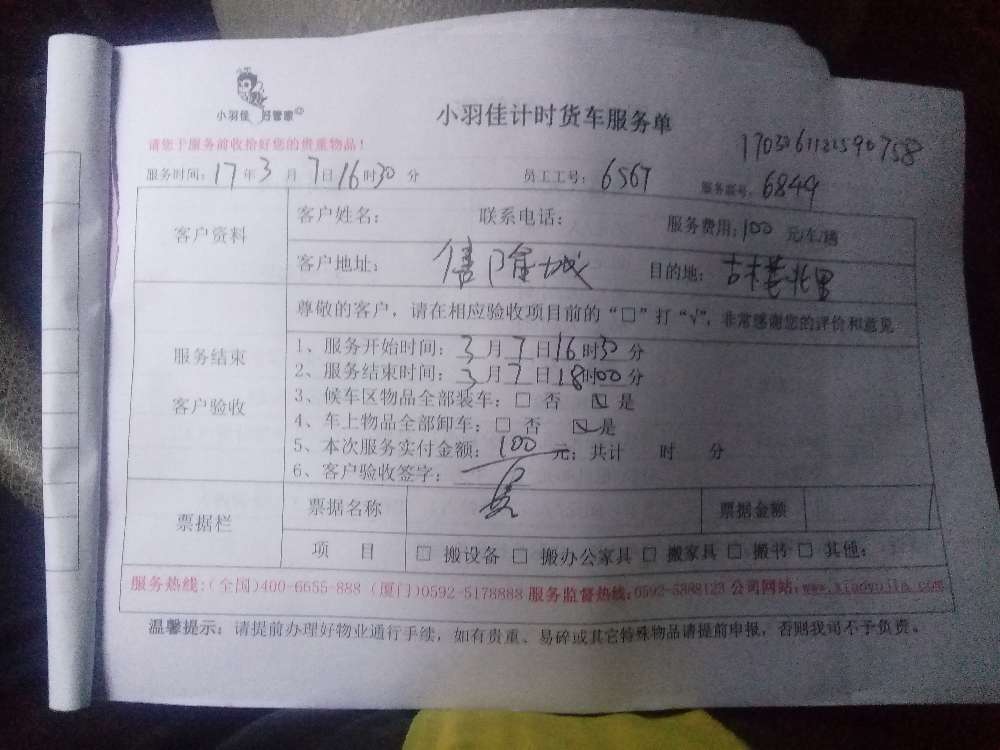 小羽佳 好管家
小羽佳计时货车服务单
请您于服务前收拾好您的贵重物品！
服务时间：17年3月7日16时30分 员工工号：6567 6849
客户资料
客户姓名： 联系电话： 服务费用：100元/车/趟
客户地址： 目的地：
服务结束
客户验收
尊敬的客户，请在相应验收项目前的“□”打“√”，非常感谢您的评价和意见
1、服务开始时间：3月7日16时30分
2、服务结束时间：3月7日18时00分
3、候车区物品全部装车：□ 否 ☑ 是
4、车上物品全部卸车：□ 否 ☑ 是
5、本次服务实付金额：100元；共计 时 分
6、客户验收签字：
票据栏
票据名称 票据金额
项 目 □ 搬设备 □ 搬办公家具 □ 搬家具 □ 搬书 □ 其他：
服务热线：(全国)400-6655-888 (厦门)0592-5178888 服务监督热线：0592-5888123 公司网站：www.xiaoyujia.com
温馨提示：请提前办理好物业通行手续，如有贵重、易碎或其它特殊物品请提前申报，否则我司不予负责。